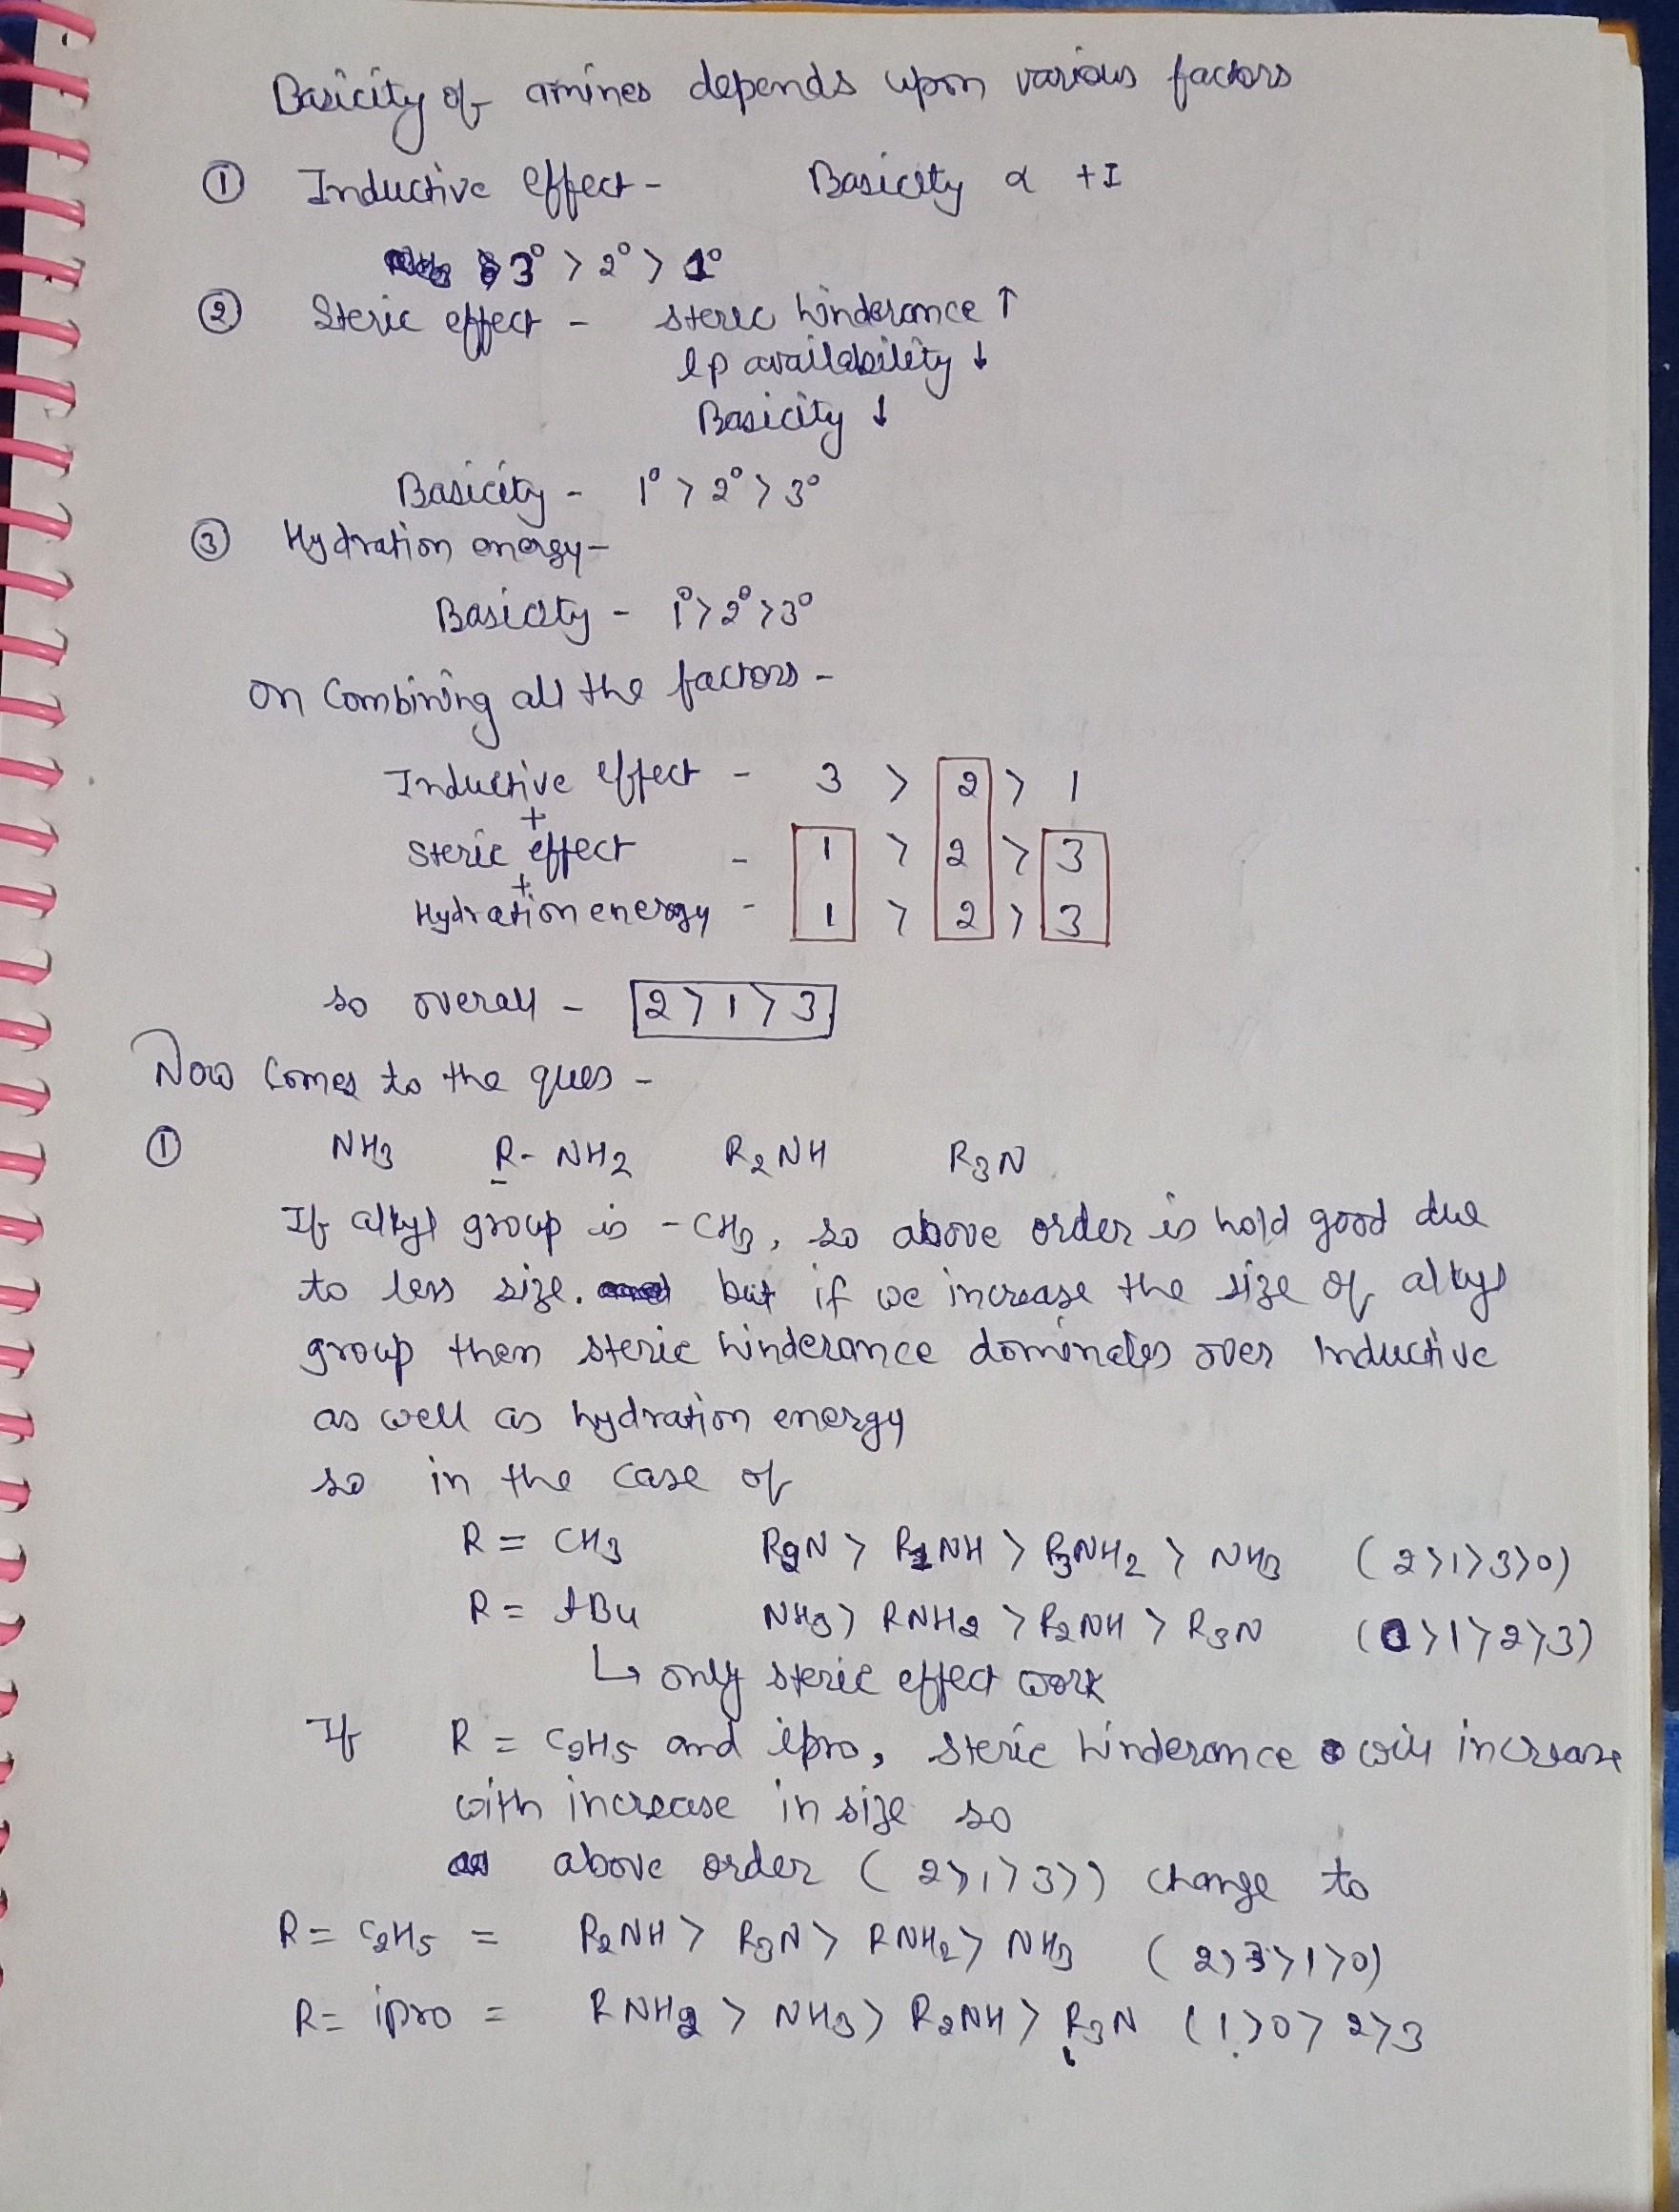 Basicity of amines depends upon various factors
① Inductive effect - Basicity α +I
3° > 2° > 1°
② Steric effect - steric hinderance ↑
lp availability ↓
Basicity ↓
Basicity - 1° > 2° > 3°
③ Hydration energy -
Basicity - 1° > 2° > 3°
on Combining all the factors -
Inductive effect - 3 > 2 > 1
+
Steric effect - 1 > 2 > 3
+
Hydration energy - 1 > 2 > 3
so overall - 2 > 1 > 3
Now Comes to the ques -
① NH3 R-NH2 R2NH R3N
If alkyl group is -CH3, so above order is hold good due
to less size. but if we increase the size of alkyl
group then steric hinderance dominates over inductive
as well as hydration energy
so in the case of
R = CH3 R2N > R1NH > R3NH2 > NH3 (2>1>3>0)
R = tBu NH3 > RNH2 > R2NH > R3N (0>1>2>3)
↳ only steric effect work
If R = C2H5 and ipro, steric hinderance will increase
with increase in size so
above order (2>1>3>) change to
R = C2H5 = R2NH > R3N > RNH2 > NH3 (2>3>1>0)
R = ipro = RNH2 > NH3 > R2NH > R3N (1>0>2>3